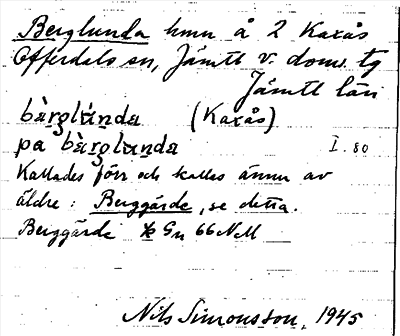 Berglunda hmn å 2 Kaxås
Offerdals sn, Jämtl v. doms. tg
Jämtl län
bèrglúnda (Kaxås)
på bèrglunda I. 80
Kallades förr och kalles ännu av
äldre: Berggärde, se detta.
Berggärde Gn 66 NM
Nils Simonsson, 1945